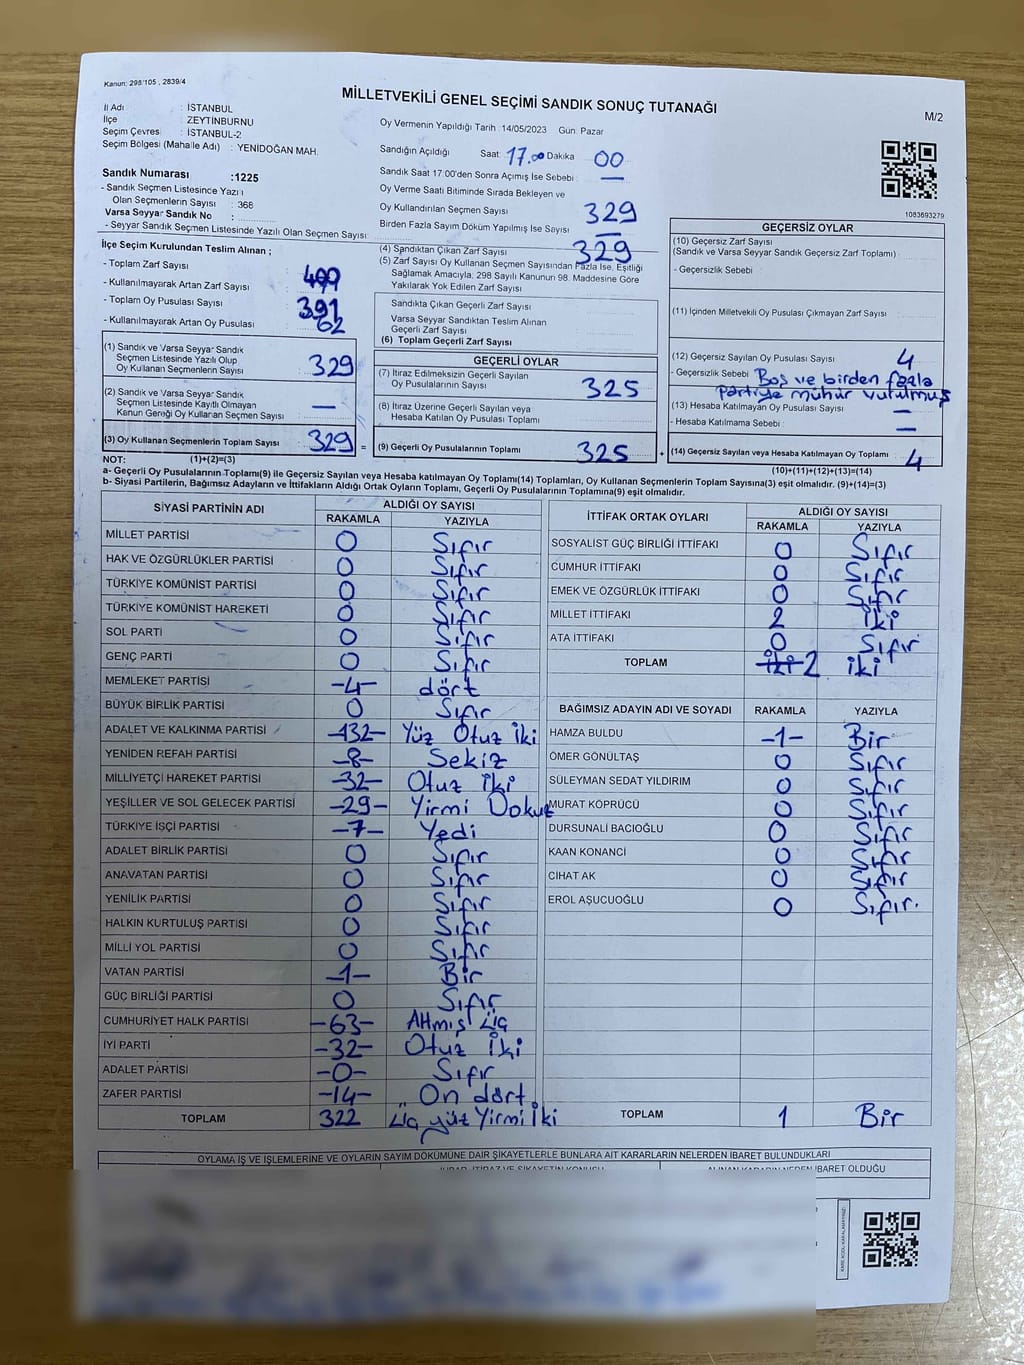 Kanun: 298/105 , 2839/4
MİLLETVEKİLİ GENEL SEÇİMİ SANDIK SONUÇ TUTANAĞI
M/2
İl Adı : İSTANBUL
İlçe : ZEYTİNBURNU
Seçim Çevresi : İSTANBUL-2
Seçim Bölgesi (Mahalle Adı) : YENİDOĞAN MAH.
Sandık Numarası :1225
- Sandık Seçmen Listesinde Yazılı
Olan Seçmenlerin Sayısı : 368
Varsa Seyyar Sandık No :
- Seyyar Sandık Seçmen Listesinde Yazılı Olan Seçmen Sayısı:
Oy Vermenin Yapıldığı Tarih :14/05/2023 Gün: Pazar
Sandığın Açıldığı Saat: 17.00 Dakika 00
Sandık Saat 17:00'den Sonra Açımış İse Sebebi : —
Oy Verme Saati Bitiminde Sırada Bekleyen ve
Oy Kullandırılan Seçmen Sayısı 329
Birden Fazla Sayım Döküm Yapılmış İse Sayısı —
1083693279
İlçe Seçim Kurulundan Teslim Alınan ;
- Toplam Zarf Sayısı :
- Kullanılmayarak Artan Zarf Sayısı :
- Toplam Oy Pusulası Sayısı : 391
- Kullanılmayarak Artan Oy Pusulası : 62
(1) Sandık ve Varsa Seyyar Sandık
Seçmen Listesinde Yazılı Olup
Oy Kullanan Seçmenlerin Sayısı : 329
(2) Sandık ve Varsa Seyyar Sandık
Seçmen Listesinde Kayıtlı Olmayan
Kanun Gereği Oy Kullanan Seçmen Sayısı : —
(3) Oy Kullanan Seçmenlerin Toplam Sayısı 329 =
(4) Sandıktan Çıkan Zarf Sayısı 329
(5) Zarf Sayısı Oy Kullanan Seçmen Sayısından Fazla İse, Eşitliği
Sağlamak Amacıyla, 298 Sayılı Kanunun 98. Maddesine Göre
Yakılarak Yok Edilen Zarf Sayısı
Sandıkta Çıkan Geçerli Zarf Sayısı
Varsa Seyyar Sandıktan Teslim Alınan
Geçerli Zarf Sayısı
(6) Toplam Geçerli Zarf Sayısı
GEÇERLİ OYLAR
(7) İtiraz Edilmeksizin Geçerli Sayılan
Oy Pusulalarının Sayısı 325
(8) İtiraz Üzerine Geçerli Sayılan veya
Hesaba Katılan Oy Pusulası Toplamı
(9) Geçerli Oy Pusulalarının Toplamı 325 +
GEÇERSİZ OYLAR
(10) Geçersiz Zarf Sayısı
(Sandık ve Varsa Seyyar Sandık Geçersiz Zarf Toplamı)
- Geçersizlik Sebebi :
(11) İçinden Milletvekili Oy Pusulası Çıkmayan Zarf Sayısı :
(12) Geçersiz Sayılan Oy Pusulası Sayısı 4
- Geçersizlik Sebebi : Boş ve birden fazla
partiye mühür vurulmuş
(13) Hesaba Katılmayan Oy Pusulası Sayısı —
- Hesaba Katılmama Sebebi : —
(14) Geçersiz Sayılan veya Hesaba Katılmayan Oy Toplamı 4
NOT: (1)+(2)=(3) (10)+(11)+(12)+(13)=(14)
a- Geçerli Oy Pusulalarının Toplamı(9) ile Geçersiz Sayılan veya Hesaba katılmayan Oy Toplamı(14) Toplamları, Oy Kullanan Seçmenlerin Toplam Sayısına(3) eşit olmalıdır. (9)+(14)=(3)
b- Siyasi Partilerin, Bağımsız Adayların ve İttifakların Aldığı Ortak Oyların Toplamı, Geçerli Oy Pusulalarının Toplamına(9) eşit olmalıdır.
SİYASİ PARTİNİN ADI ALDIĞI OY SAYISI
RAKAMLA YAZIYLA
MİLLET PARTİSİ 0 Sıfır
HAK VE ÖZGÜRLÜKLER PARTİSİ 0 Sıfır
TÜRKİYE KOMÜNİST PARTİSİ 0 Sıfır
TÜRKİYE KOMÜNİST HAREKETİ 0 Sıfır
SOL PARTİ 0 Sıfır
GENÇ PARTİ 0 Sıfır
MEMLEKET PARTİSİ -4- dört
BÜYÜK BİRLİK PARTİSİ 0 Sıfır
ADALET VE KALKINMA PARTİSİ -132- Yüz Otuz İki
YENİDEN REFAH PARTİSİ -8- Sekiz
MİLLİYETÇİ HAREKET PARTİSİ -32- Otuz iki
YEŞİLLER VE SOL GELECEK PARTİSİ -29- Yirmi Dokuz
TÜRKİYE İŞÇİ PARTİSİ -7- Yedi
ADALET BİRLİK PARTİSİ 0 Sıfır
ANAVATAN PARTİSİ 0 Sıfır
YENİLİK PARTİSİ 0 Sıfır
HALKIN KURTULUŞ PARTİSİ 0 Sıfır
MİLLİ YOL PARTİSİ 0 Sıfır
VATAN PARTİSİ -1- Bir
GÜÇ BİRLİĞİ PARTİSİ 0 Sıfır
CUMHURİYET HALK PARTİSİ -63- Altmış Üç
İYİ PARTİ -32- Otuz İki
ADALET PARTİSİ -0- Sıfır
ZAFER PARTİSİ -14- On dört
TOPLAM 322 Üç yüz Yirmi İki
İTTİFAK ORTAK OYLARI ALDIĞI OY SAYISI
RAKAMLA YAZIYLA
SOSYALİST GÜÇ BİRLİĞİ İTTİFAKI 0 Sıfır
CUMHUR İTTİFAKI 0 Sıfır
EMEK VE ÖZGÜRLÜK İTTİFAKI 0 Sıfır
MİLLET İTTİFAKI 2 İki
ATA İTTİFAKI 0 Sıfır
TOPLAM iki 2 iki
BAĞIMSIZ ADAYIN ADI VE SOYADI RAKAMLA YAZIYLA
HAMZA BULDU -1- Bir
ÖMER GÖNÜLTAŞ 0 Sıfır
SÜLEYMAN SEDAT YILDIRIM 0 Sıfır
MURAT KÖPRÜCÜ 0 Sıfır
DURSUNALİ BACIOĞLU 0 Sıfır
KAAN KONANCİ 0 Sıfır
CİHAT AK 0 Sıfır
EROL AŞUCUOĞLU 0 Sıfır.
TOPLAM 1 Bir
OYLAMA İŞ VE İŞLEMLERİNE VE OYLARIN SAYIM DÖKÜMÜNE DAİR ŞİKAYETLERLE BUNLARA AİT KARARLARIN NELERDEN İBARET BULUNDUKLARI
ALINAN KARARIN NEDEN İBARET OLDUĞU